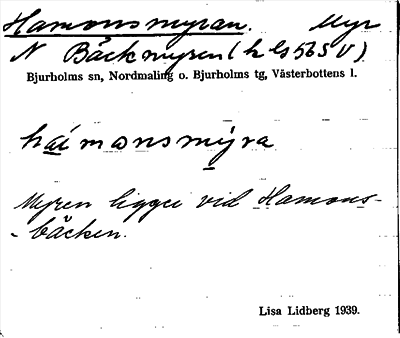 Hamonsmyran. Myr
N Bäckmyren (h ls 565 V)
Bjurholms sn, Nordmaling o. Bjurholms tg, Västerbottens l.
háimonsmýra
Myren ligger vid Hamons-
-bäcken.
Lisa Lidberg 1939.